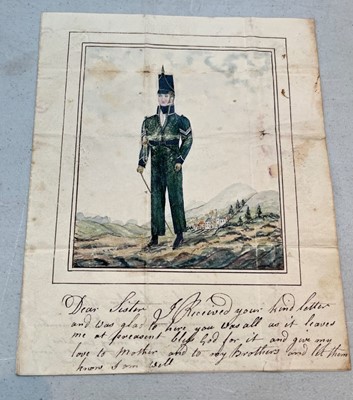 Dear Sister I Received your kind letter
and was glad to hire you was all as it leaves
me at presesent bless God for it and give my
love to Mother and to my Brothers and let them
know I am well